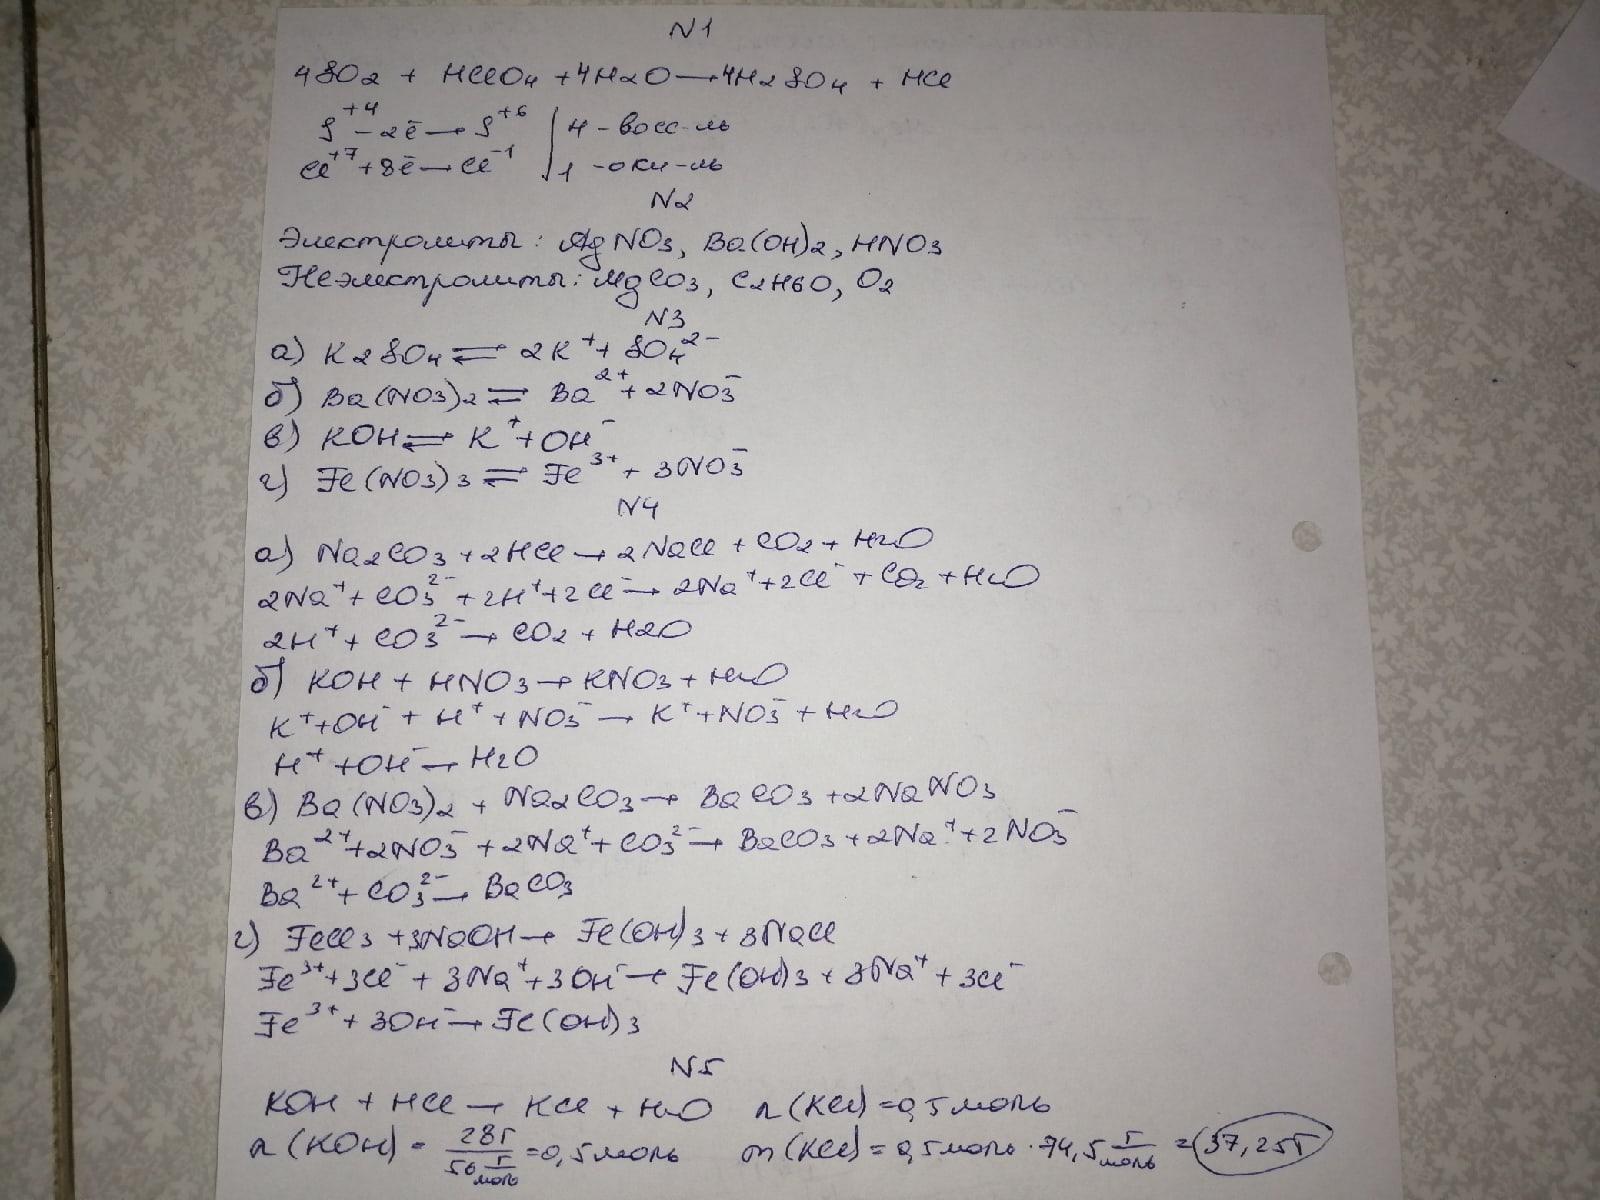 N1
4SO2 + HClO4 + 4H2O → 4H2SO4 + HCl
S+4 - 2ē → S+6 | 4 - восс-ль
Cl+7 + 8ē → Cl-1 | 1 - оки-ль
N2
Электролиты: AgNO3, Ba(OH)2, HNO3
Неэлектролиты: MgCO3, C2H6O, O2
N3
а) K2SO4 ⇌ 2K+ + SO4 2-
б) Ba(NO3)2 ⇌ Ba2+ + 2NO3-
в) KOH ⇌ K+ + OH-
г) Fe(NO3)3 ⇌ Fe3+ + 3NO3-
N4
а) Na2CO3 + 2HCl → 2NaCl + CO2 + H2O
2Na+ + CO3 2- + 2H+ + 2Cl- → 2Na+ + 2Cl- + CO2 + H2O
2H+ + CO3 2- → CO2 + H2O
б) KOH + HNO3 → KNO3 + H2O
K+ + OH- + H+ + NO3- → K+ + NO3- + H2O
H+ + OH- → H2O
в) Ba(NO3)2 + Na2CO3 → BaCO3 + 2NaNO3
Ba2+ + 2NO3- + 2Na+ + CO3 2- → BaCO3 + 2Na+ + 2NO3-
Ba2+ + CO3 2- → BaCO3
г) FeCl3 + 3NaOH → Fe(OH)3 + 3NaCl
Fe3+ + 3Cl- + 3Na+ + 3OH- → Fe(OH)3 + 3Na+ + 3Cl-
Fe3+ + 3OH- → Fe(OH)3
N5
KOH + HCl → KCl + H2O n(KCl) = 0,5 моль
n(KOH) = 28г / 56 г/моль = 0,5 моль m(KCl) = 0,5 моль · 74,5 г/моль = 37,25г